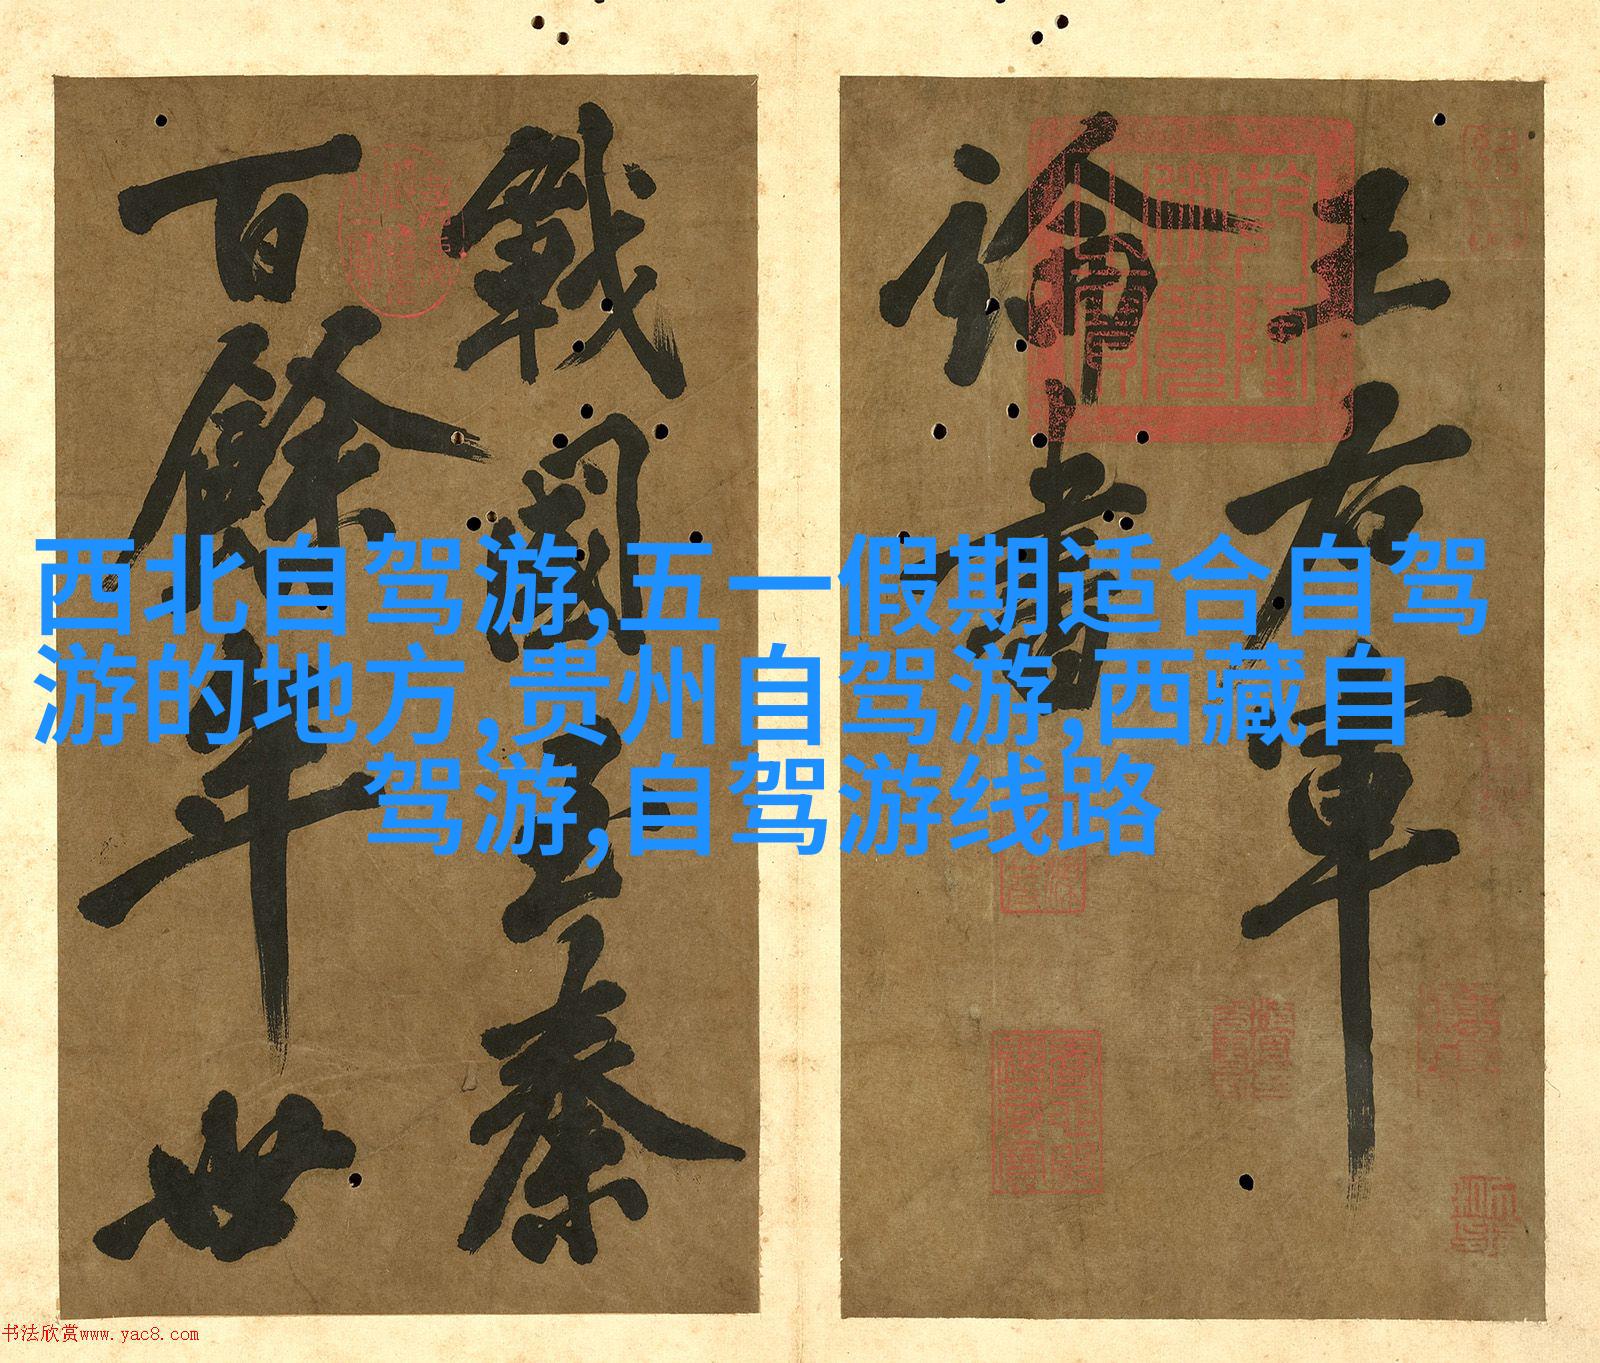 王右軍
論書
戰國至秦
百餘年世
乾隆御覽之寶
西北自驾游,五一假期适合自驾
游的地方,贵州自驾游,西藏自
驾游,自驾游线路
书法欣赏www.yac8.com